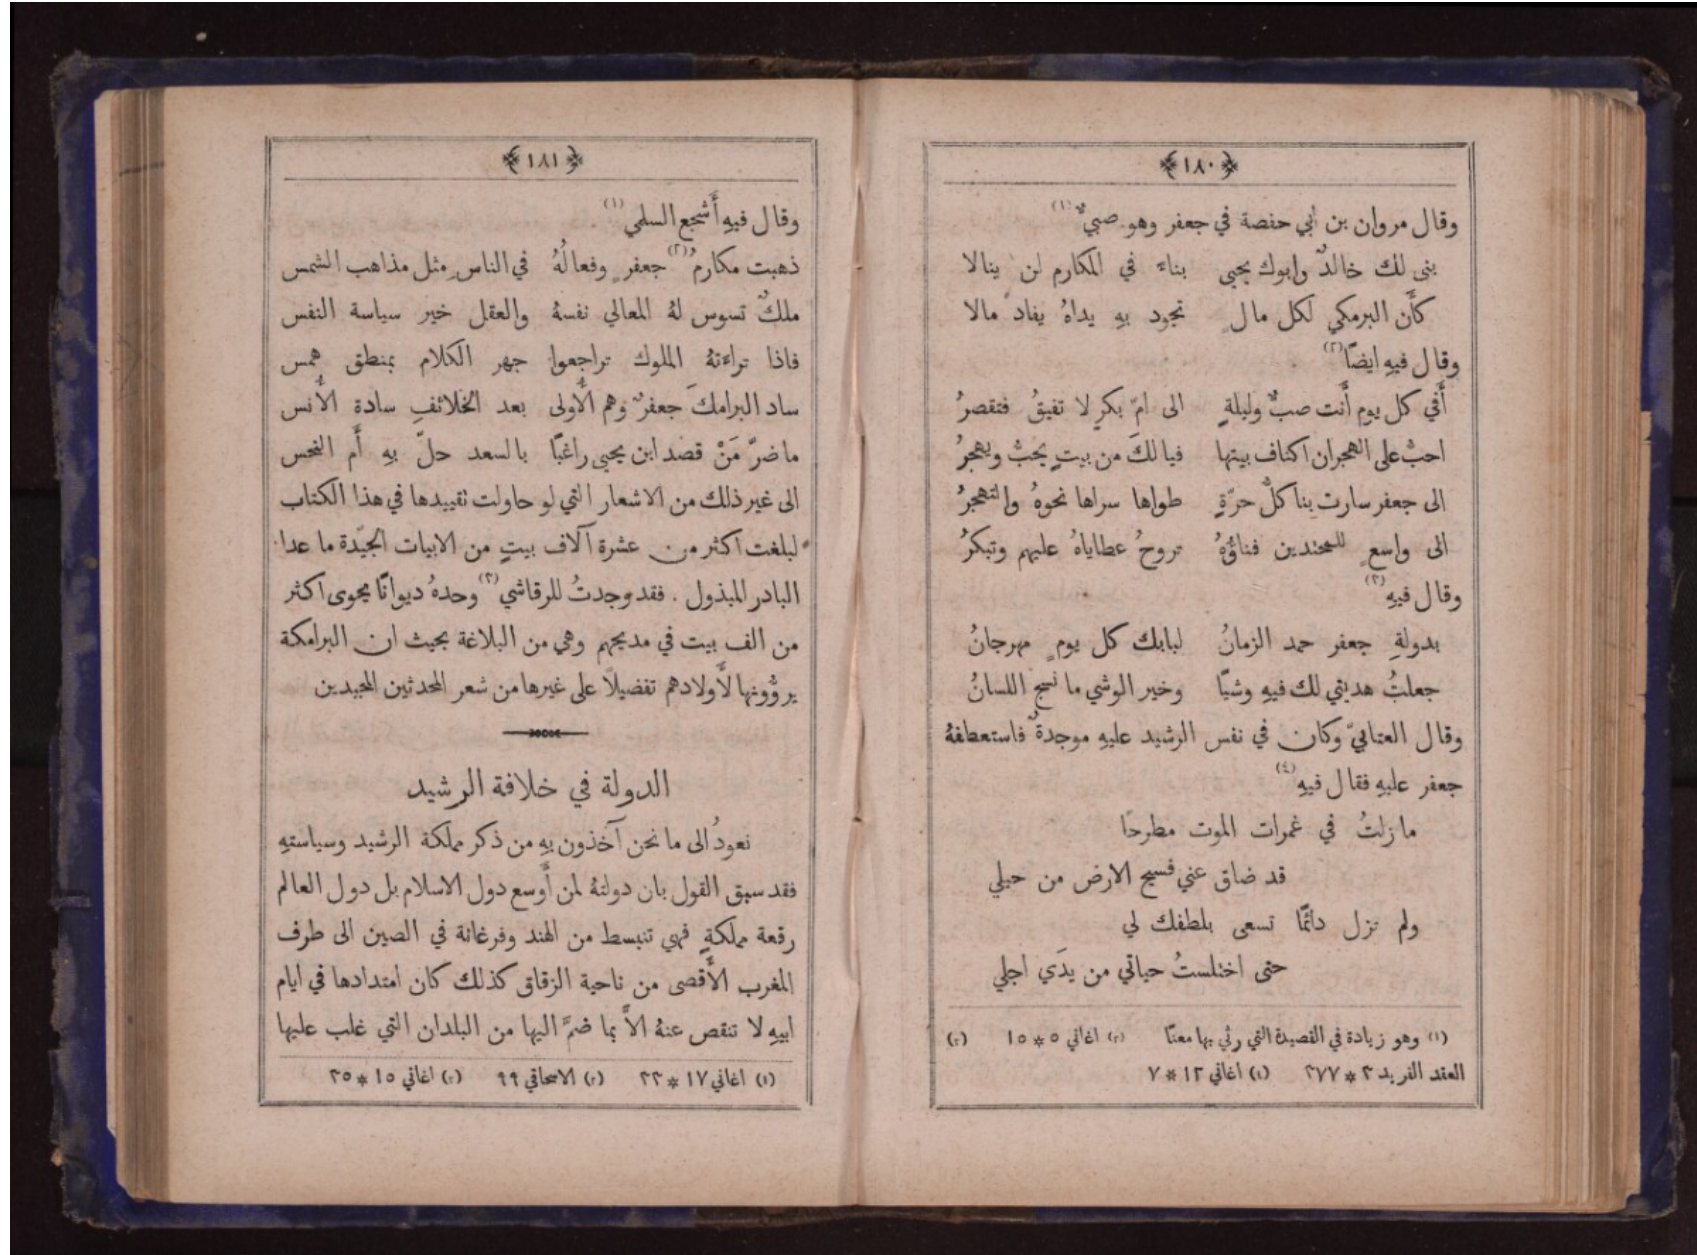 ﴿١٨٠﴾
وقال مروان بن أبي حفصة في جعفر وهو صبيٌّ (١)
بنى لك خالدٌ وابوك يحيى بناءً في المكارم لن ينالا
كأَن البرمكي لكل مالٍ تجود بهِ يداهُ يفاد مالا
وقال فيهِ ايضًا (٢)
أَفي كل يومٍ أَنت صبٌّ وليلةٍ الى امّ بكرٍ لا تفيقُ فتقصرُ
احبُّ على الهجران اكناف بيتها فيا لكَ من بيتٍ يحبُّ ويهجرُ
الى جعفر سارت بنا كلُّ حرّةٍ طواها سراها نحوهُ والتهجرُ
الى واسعٍ للمجتدين فناؤُهُ تروحُ عطاياهُ عليهم وتبكرُ
وقال فيهِ (٣)
بدولةِ جعفر حمد الزمانُ لبابك كل يومٍ مهرجانُ
جعلتُ هديتي لك فيهِ وشيًا وخير الوشي ما نسج اللسانُ
وقال العتابيّ وكان في نفس الرشيد عليهِ موجدةٌ فاستعطفهُ
جعفر عليهِ فقال فيهِ (٤)
ما زلتُ في غمرات الموت مطرحًا
قد ضاق عني فسيح الارض من حيلي
ولم تزل دائمًا تسعى بلطفك لي
حتى اختلستُ حياتي من يدَي اجلي
(١) وهو زيادة في القصيدة التي رثي بها معنًا (٢) اغاني ٥ * ١٥ (٣)
العقد الفريد ٣ * ٢٧٧ (٤) اغاني ١٢ * ٧
﴿١٨١﴾
وقال فيهِ أَشجع السلمي (١)
ذهبت مكارمُ (٢) جعفرٍ وفعالُهُ في الناس مثل مذاهب الشمس
ملكٌ تسوس لهُ المعالي نفسهُ والعقل خير سياسة النفس
فاذا تراءتهُ الملوك تراجعوا جهر الكلام بمنطق همس
ساد البرامكَ جعفرٌ وهم الأُولى بعد الخلائفِ سادة الأُنس
ما ضرَّ مَنْ قصد ابن يحيى راغبًا بالسعد حلَّ بهِ أَم النحس
الى غير ذلك من الاشعار التي لو حاولت تقييدها في هذا الكتاب
لبلغت اكثر من عشرة آلاف بيتٍ من الابيات الجيّدة ما عدا
البادر المبذول . فقد وجدتُ للرقاشي (٣) وحدهُ ديوانًا يحوى اكثر
من الف بيت في مديحهم وهي من البلاغة بحيث ان البرامكة
يروُّونها لأَولادهم تفضيلاً على غيرها من شعر المحدثين المجيدين
الدولة في خلافة الرشيد
نعودُ الى ما نحن آخذون بهِ من ذكر مملكة الرشيد وسياستهِ
فقد سبق القول بان دولتهُ لمن أَوسع دول الاسلام بل دول العالم
رقعة مملكةٍ فهي تنبسط من الهند وفرغانة في الصين الى طرف
المغرب الأَقصى من ناحية الزقاق كذلك كان امتدادها في ايام
ابيهِ لا تنقص عنهُ الاَّ بما ضمَّ اليها من البلدان التي غلب عليها
(١) اغاني ١٧ * ٣٣ (٢) الاسحاقي ٩٩ (٣) اغاني ١٥ * ٣٥